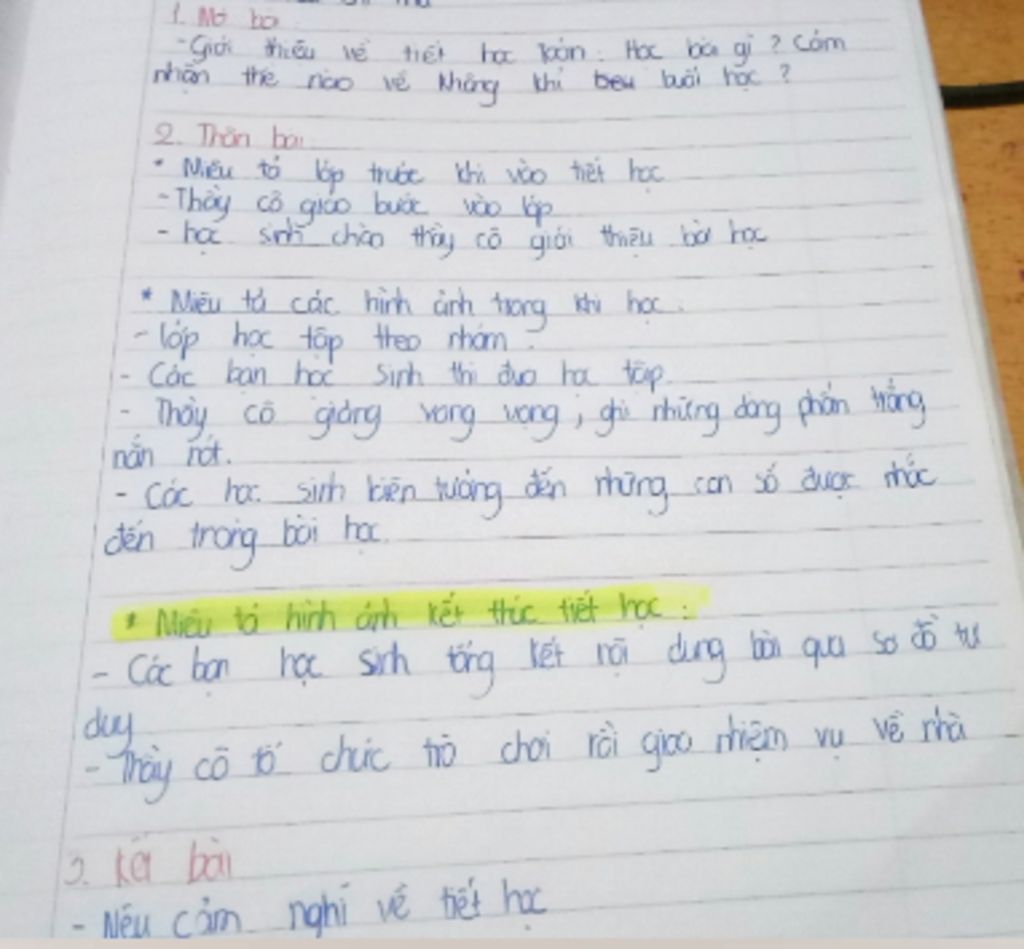 1. Mở bà
-Giới thiệu về tiết học Toán. Học bài gì? Cảm
nhận thế nào về không khí buổi học?
2. Thân bài
* Miêu tả lớp trước khi vào tiết học
-Thầy cô giáo bước vào lớp
- học sinh chào thầy cô giới thiệu bài học
* Miêu tả các hình ảnh trong khi học:
- lớp học tập theo nhóm.
- Các bạn học sinh thi đua học tập.
- Thầy cô giảng vang vọng, ghi những dòng phấn trắng
nắn nót.
- Các học sinh liên tưởng đến những con số được nhắc
đến trong bài học.
* Miêu tả hình ảnh kết thúc tiết học:
- Các bạn học sinh tổng kết nội dung bài qua sơ đồ tư
duy
- Thầy cô tổ chức trò chơi rồi giao nhiệm vụ về nhà
3. Kết bài
- Nêu cảm nghĩ về tiết học